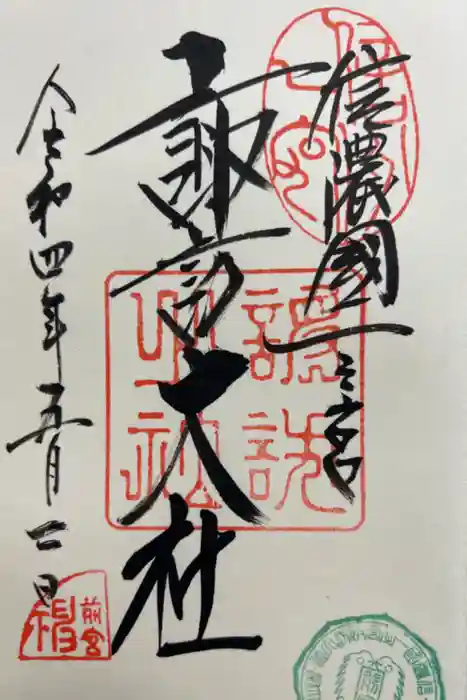 信濃國一之宮
諏訪大社
令和四年五月廿日
諏訪
明神
前宮